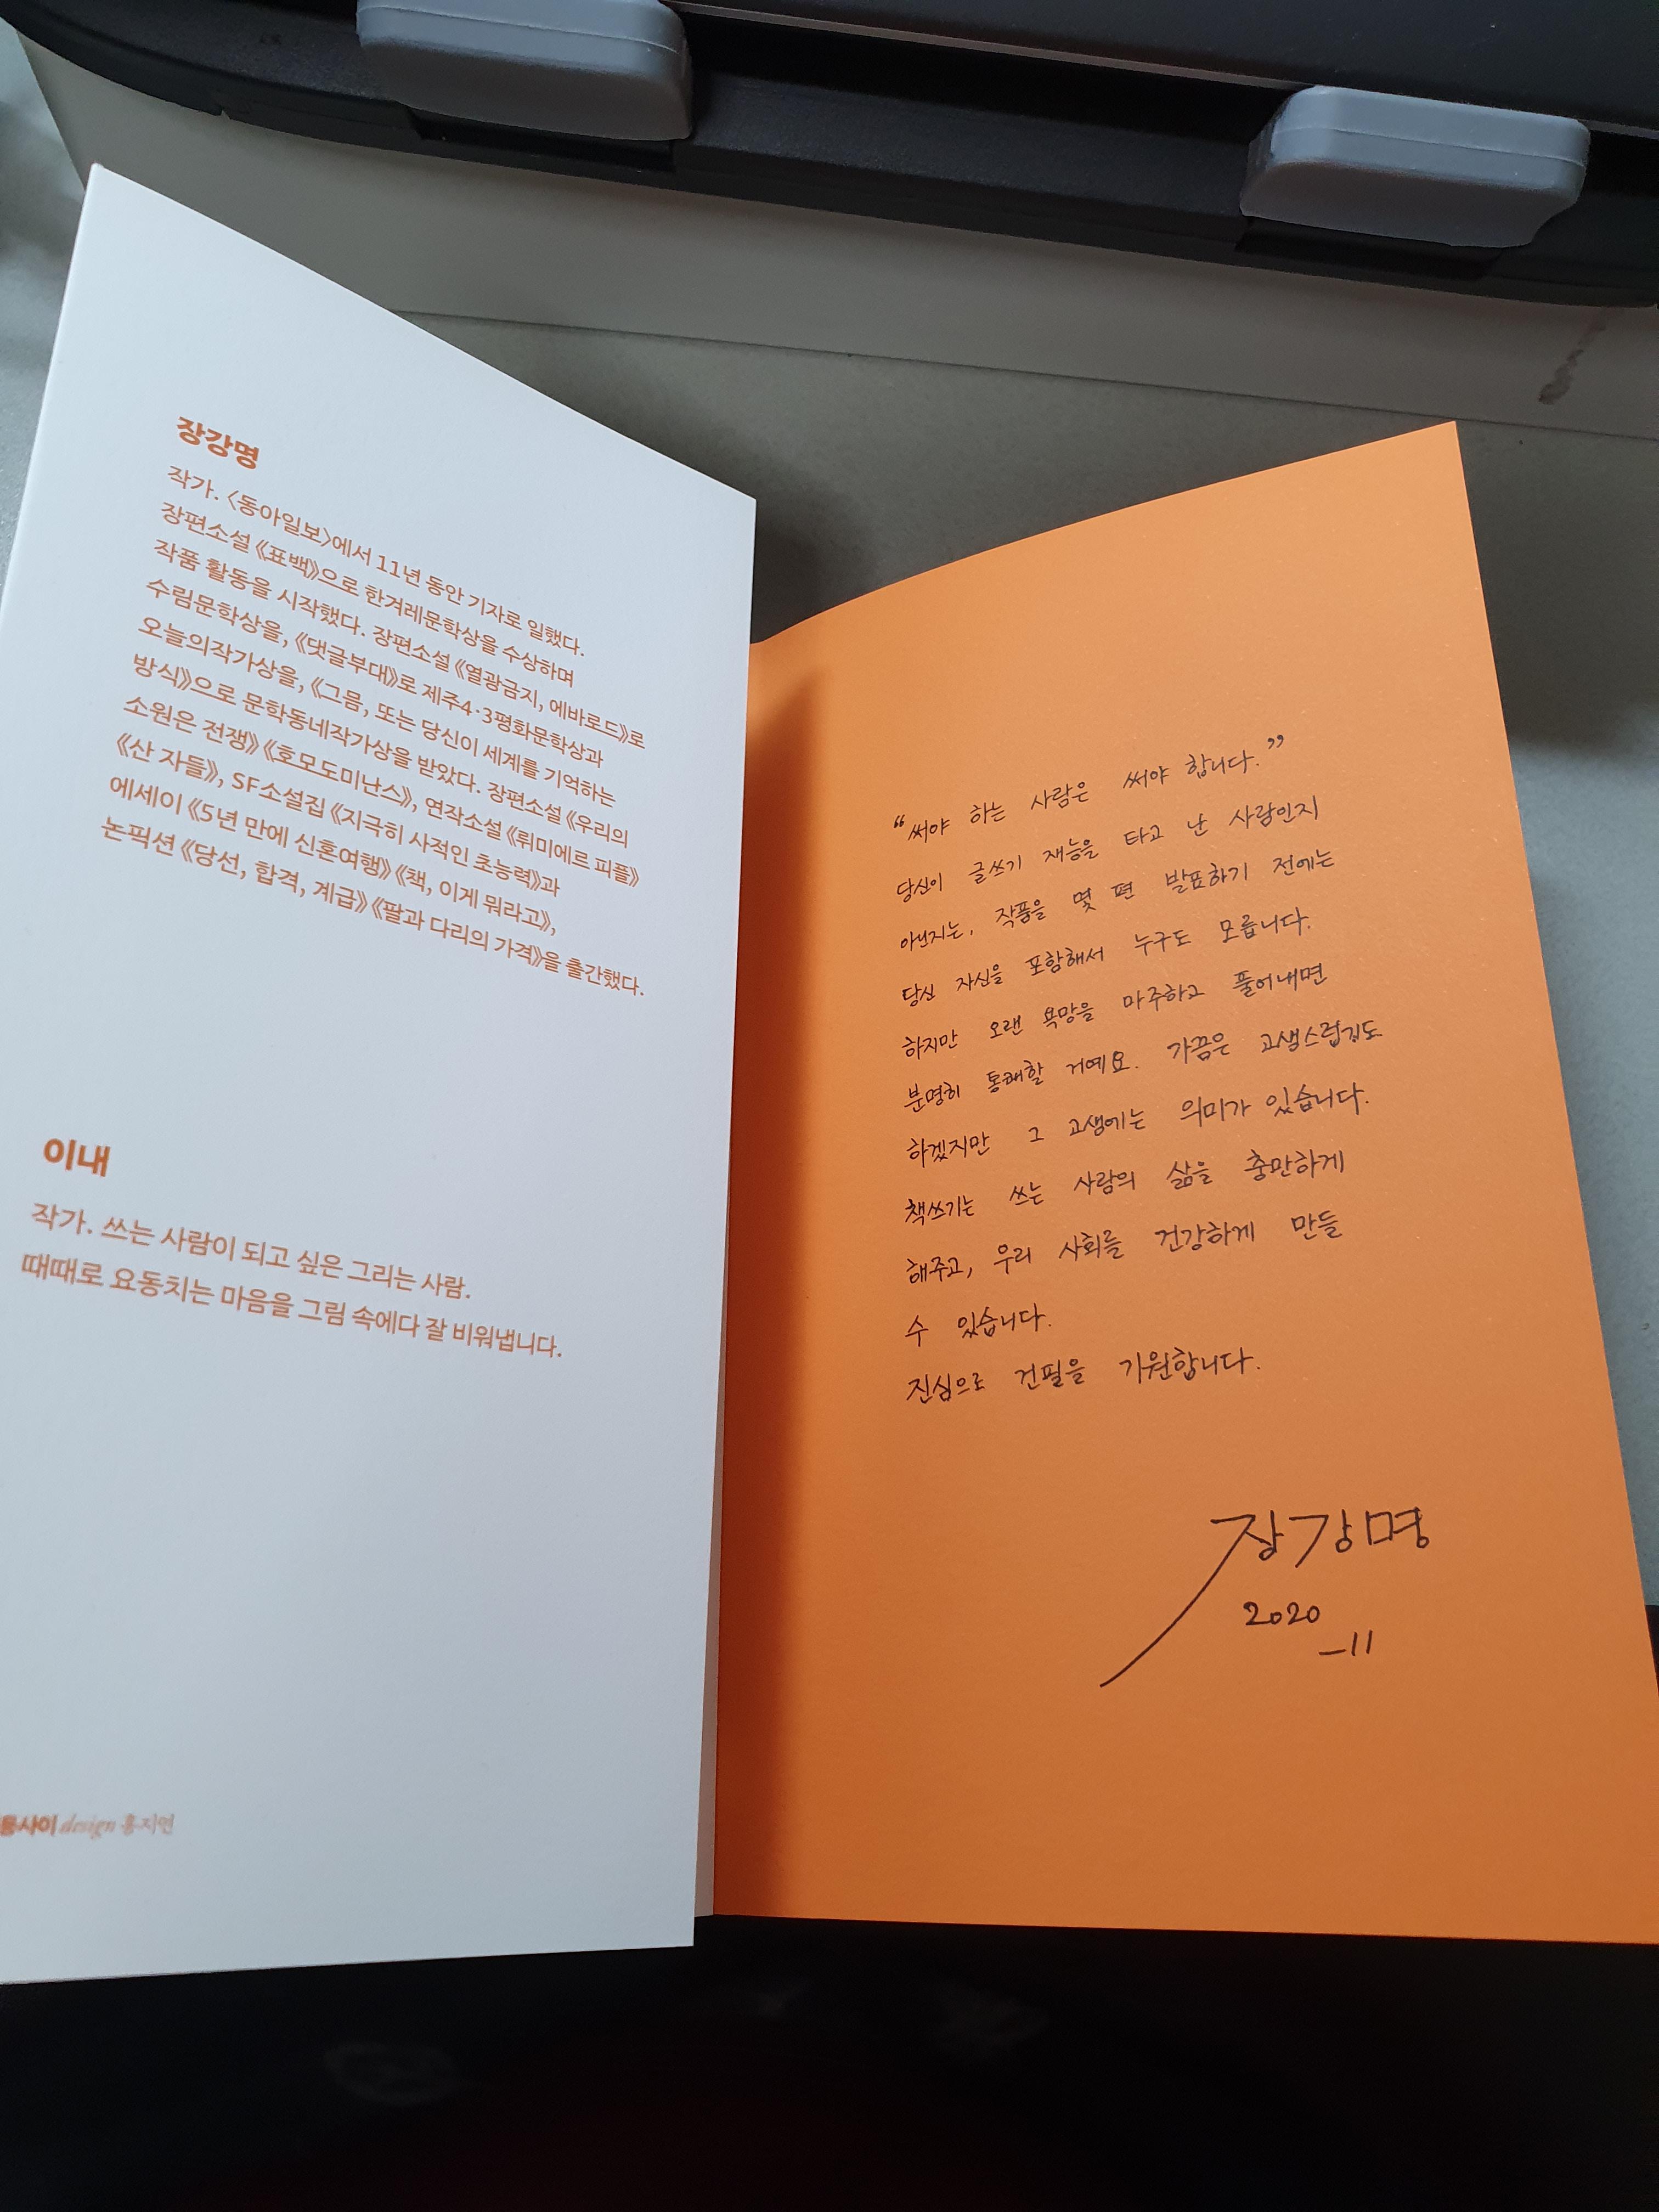 장강명
작가. 〈동아일보〉에서 11년 동안 기자로 일했다.
장편소설 《표백》으로 한겨레문학상을 수상하며
작품 활동을 시작했다. 장편소설 《열광금지, 에바로드》로
수림문학상을, 《댓글부대》로 제주4·3평화문학상과
오늘의작가상을, 《그믐, 또는 당신이 세계를 기억하는
방식》으로 문학동네작가상을 받았다. 장편소설 《우리의
소원은 전쟁》 《호모도미난스》, 연작소설 《뤼미에르 피플》
《산 자들》, SF소설집 《지극히 사적인 초능력》과
에세이 《5년 만에 신혼여행》 《책, 이게 뭐라고》,
논픽션 《당선, 합격, 계급》 《팔과 다리의 가격》을 출간했다.
이내
작가. 쓰는 사람이 되고 싶은 그리는 사람.
때때로 요동치는 마음을 그림 속에다 잘 비워냅니다.
design 홍지연
“써야 하는 사람은 써야 합니다.”
당신이 글쓰기 재능을 타고 난 사람인지
아닌지는, 작품을 몇 편 발표하기 전에는
당신 자신을 포함해서 누구도 모릅니다.
하지만 오랜 욕망을 마주하고 풀어내면
분명히 통쾌할 거예요. 가끔은 고생스럽기도
하겠지만 그 고생에는 의미가 있습니다.
책쓰기는 쓰는 사람의 삶을 충만하게
해주고, 우리 사회를 건강하게 만들
수 있습니다.
진심으로 건필을 기원합니다.
장강명
2020
-11